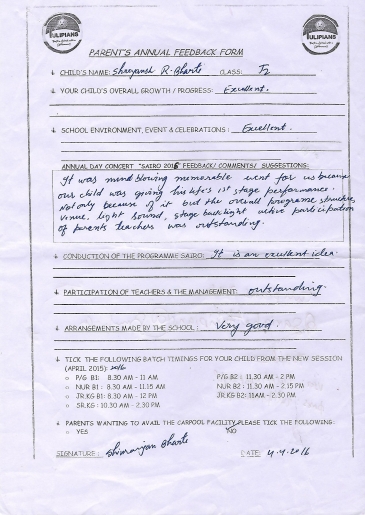 TULIPIANS
TULIPIANS
PARENT'S ANNUAL FEEDBACK FORM
CHILD'S NAME: Shreyansh R. Bharte CLASS: T2
YOUR CHILD'S OVERALL GROWTH / PROGRESS: Excellent.
SCHOOL ENVIRONMENT, EVENT & CELEBRATIONS: Excellent.
ANNUAL DAY CONCERT "SAIRO 2016 FEEDBACK/ COMMENTS/ SUGGESTIONS:
It was mind blowing memorable event for us because
our child was giving his life's 1st stage performance.
Not only because of it but the overall programe structure,
venue, light sound, stage backlight active participation
of parents teachers was outstanding.
CONDUCTION OF THE PROGRAMME SAIRO: It is an excellent idea.
PARTICIPATION OF TEACHERS & THE MANAGEMENT: outstanding.
ARRANGEMENTS MADE BY THE SCHOOL: Very good.
TICK THE FOLLOWING BATCH TIMINGS FOR YOUR CHILD FROM THE NEW SESSION
(APRIL 2015): 2016
P/G B1: 8.30 AM - 11 AM P/G B2: 11.30 AM - 2 PM
NUR B1: 8.30 AM - 11.15 AM NUR B2: 11.30 AM - 2.15 PM
JR.KG B1: 8.30 AM - 12 PM JR.KG B2: 11AM - 2.30 PM
SR.KG: 10.30 AM - 2.30 PM
PARENTS WANTING TO AVAIL THE CARPOOL FACILITY PLEASE TICK THE FOLLOWING:
YES NO
SIGNATURE: Bharte DATE: 4.4.2016